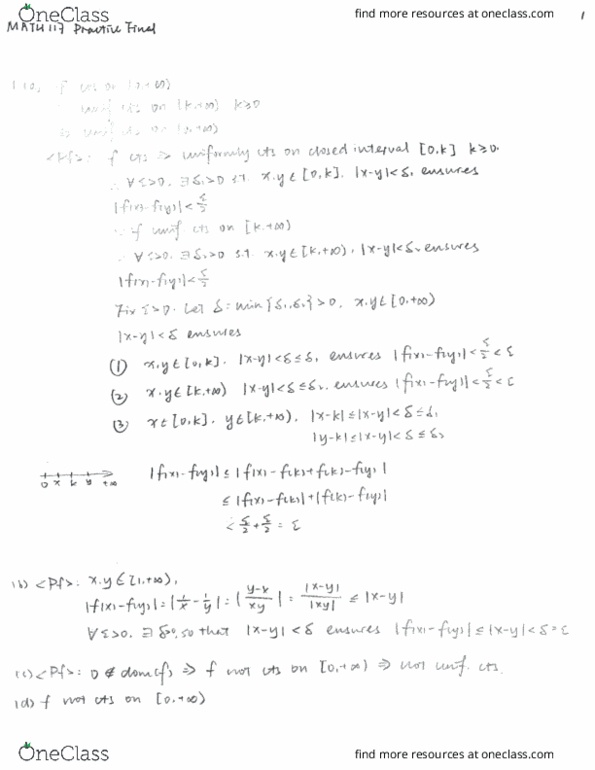 OneClass
find more resources at oneclass.com
1
MATH 117 Practice Final
1 (a), f cts on [0,+∞)
unif cts on [k,+∞) k≥0
⇒ unif cts on [0,+∞)
<Pf>: f cts ⇒ uniformly cts on closed interval [0,k] k≥0.
∴ ∀ε>0. ∃δ₁>0 s.t. x.y∈[0,k]. |x-y|<δ₁ ensures
|f(x)-f(y)|<ε/2
∵ f unif cts on [k,+∞)
∴ ∀ε>0. ∃δ₂>0 s.t. x.y∈[k,+∞), |x-y|<δ₂ ensures
|f(x)-f(y)|<ε/2
Fix ε>0. Let δ=min{δ₁,δ₂}>0. x.y∈[0,+∞)
|x-y|<δ ensures
(1) x.y∈[0,k]. |x-y|<δ≤δ₁ ensures |f(x)-f(y)|<ε/2<ε
(2) x.y∈[k,+∞) |x-y|<δ≤δ₂. ensures |f(x)-f(y)|<ε/2<ε
(3) x∈[0,k]. y∈[k,+∞). |x-k|≤|x-y|<δ≤δ₁
|y-k|≤|x-y|<δ≤δ₂
0 x k y +∞
|f(x)-f(y)|≤|f(x)-f(k)+f(k)-f(y)|
≤|f(x)-f(k)|+|f(k)-f(y)|
<ε/2+ε/2=ε
1(b) <Pf>: x.y∈[1,+∞),
|f(x)-f(y)|=|1/x-1/y|=|(y-x)/xy|=|x-y|/|xy|≤|x-y|
∀ε>0. ∃δ>0, so that |x-y|<δ ensures |f(x)-f(y)|≤|x-y|<δ=ε
1(c) <Pf>: 0∉dom(f) ⇒ f not cts on [0,+∞) ⇒ not unif. cts.
1(d) f not cts on [0,+∞)
OneClass
find more resources at oneclass.com